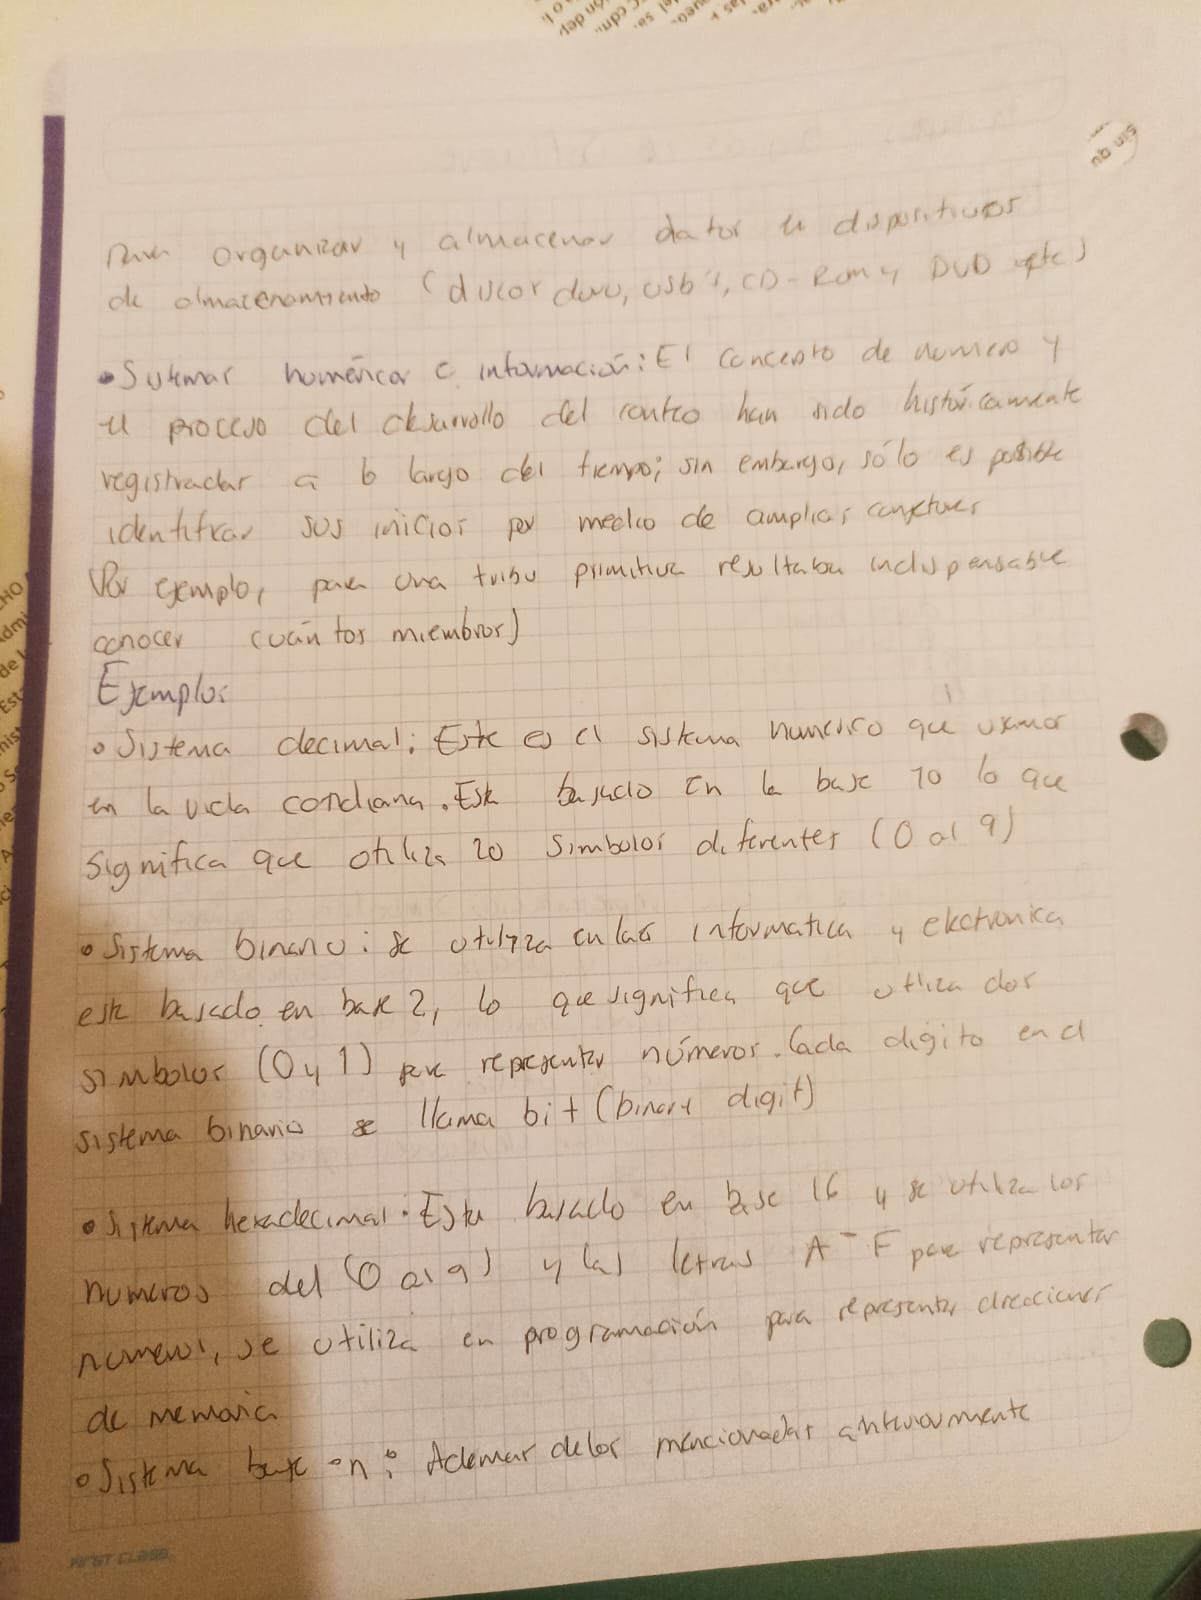 para organizar y almacenar datos en dispositivos
de almacenamiento (discos duros, USb's, CD-Rom y DVD etc)
• Sistemas numéricos e información: El concepto de numero y
el proceso del desarrollo del conteo han sido históricamente
registradas a lo largo del tiempo; sin embargo, sólo es posible
identificar sus inicios por medio de amplias conjeturas
(Por ejemplo, para una tribu primitiva resultaba indispensable
conocer cuántos miembros)
Ejemplos
• Sistema decimal: Este es el sistema numerico que usamos
en la vida cotidiana. Está basado en la base 10 lo que
significa que utiliza 10 simbolos diferentes (0 al 9)
• Sistema binario: se utiliza en las informatica y electronica
este basado en base 2, lo que significa que utiliza dos
simbolos (0 y 1) para representar números. Cada digito en el
sistema binario se llama bit (binary digit)
• Sistema hexadecimal: Esta basado en base 16 y se utiliza los
numeros del (0 al 9) y las letras A-F para representar
numeros, se utiliza en programación para representar direcciones
de memoria
• Sistema base "n": Ademas delos mencionadas anteriormente
FIRST CLASS
sin qu